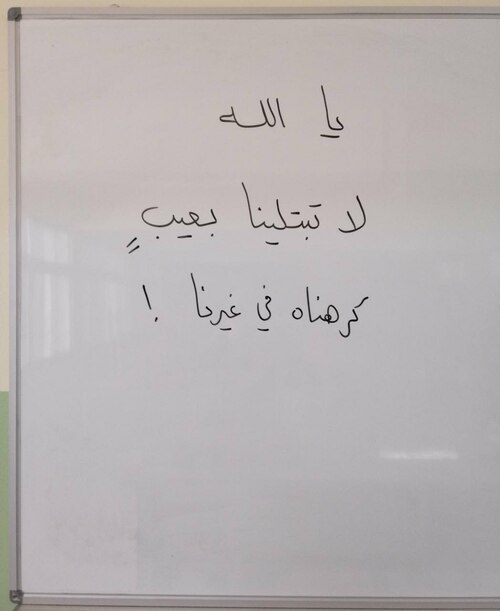 يا الله
لا تبتلينا بعيبٍ
كرهناه في غيرنا !